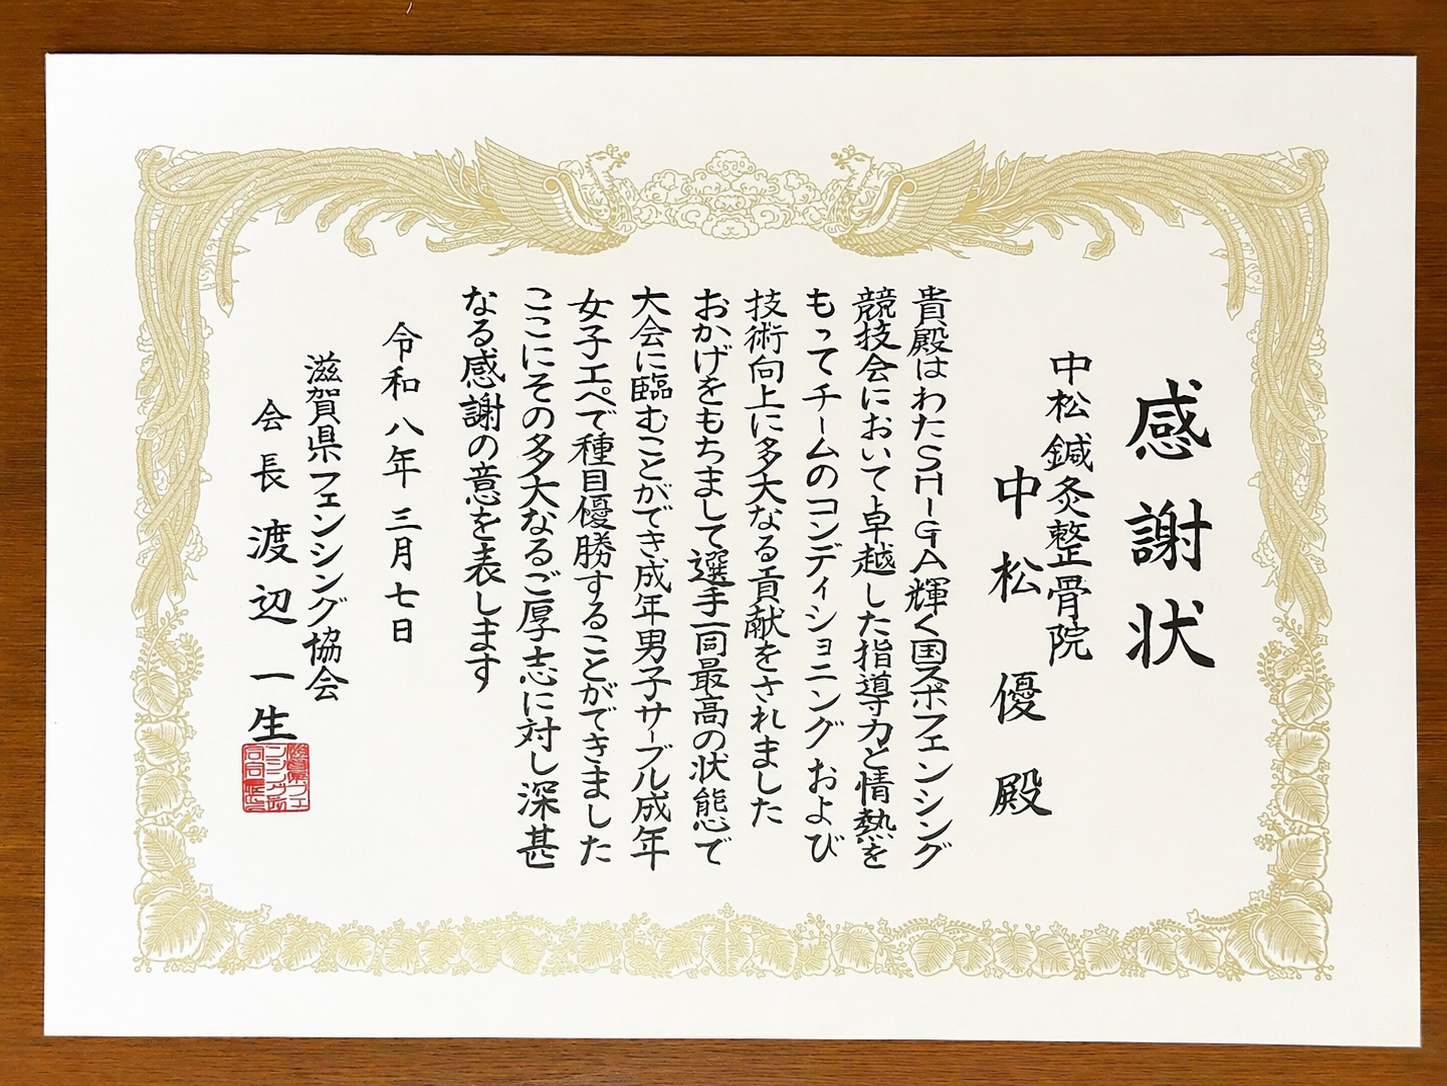 感謝状
中松鍼灸整骨院
中松優殿
貴殿はわたSHIGA輝く国スポフェンシング
競技会において卓越した指導力と情熱を
もってチームのコンディショニングおよび
技術向上に多大なる貢献をされました
おかげをもちまして選手一同最高の状態で
大会に臨むことができ成年男子サーブル成年
女子エペで種目優勝することができました
ここにその多大なるご厚志に対し深甚
なる感謝の意を表します
令和八年三月七日
滋賀県フェンシング協会
会長渡辺一生